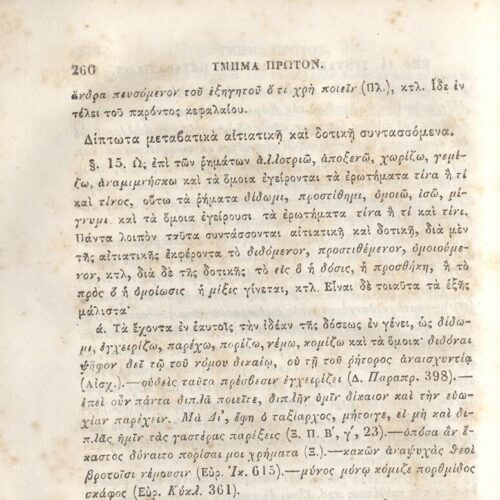 260
ΤΜΗΜΑ ΠΡΩΤΟΝ.
ἄνδρα πευσόμενον τοῦ ἐξηγητοῦ ὅ τι χρὴ ποιεῖν (Πλ.), κτλ. Ἴδε ἐν
τέλει τοῦ παρόντος κεφαλαίου.
Δίπτωτα μεταβατικὰ αἰτιατικῇ καὶ δοτικῇ συντασσόμενα.
§. 15. Ὡς ἐπὶ τῶν ῥημάτων ἀλλοτριῶ, ἀποξενῶ, χωρίζω, γεμί-
ζω, ἀναμιμνήσκω καὶ τὰ ὅμοια ἐγείρονται τὰ ἐρωτήματα τίνα ἢ τί
καὶ τίνος, οὕτω τὰ ῥήματα δίδωμι, προστίθημι, ὁμοιῶ, ἰσῶ, μί-
γνυμι καὶ τὰ ὅμοια ἐγείρουσι τὰ ἐρωτήματα τίνα ἢ τί καὶ τίνι.
Πάντα λοιπὸν ταῦτα συντάσσονται αἰτιατικῇ καὶ δοτικῇ, διὰ μὲν
τῆς αἰτιατικῆς ἐκφέροντα τὸ διδόμενον, προστιθέμενον, ὁμοιούμε-
νον, κτλ, διὰ δὲ τῆς δοτικῆς τὸ εἰς ὃ ἡ δόσις, ἡ προσθήκη, ἢ τὸ
πρὸς ὃ ἡ ὁμοίωσις ἢ μίξις γίνεται, κτλ. Εἶναι δὲ τοιαῦτα τὰ ἑξῆς
μάλιστα·
ά. Τὰ ἔχοντα ἐν ἑαυτοῖς τὴν ἰδέαν τῆς δόσεως ἐν γένει, ὡς δίδω-
μι, ἐγχειρίζω, παρέχω, πορίζω, νέμω, κομίζω καὶ τὰ ὅμοια· διδόναι
ψῆφον δεῖ τῷ τοῦ νόμου δικαίῳ, οὐ τῇ τοῦ ῥήτορος ἀναισχυντίᾳ
(Αἰσχ.).—οὐδεὶς ταῦτα πρέσβεσιν ἐγχειρίζει (Δ. Παραπρ. 398).—
ἐπεὶ οὖν πάντα διπλᾶ ποιεῖτε, διπλῆν ὑμῖν δίκαιον καὶ τὴν εὐω-
χίαν παρέχειν. Μὰ Δί', ἔφη ὁ ταξίαρχος, μήτοιγε, εἰ μὴ καὶ δι-
πλᾶς ἡμῖν τὰς γαστέρας παρέξεις (Ξ. Π. Β', γ', 23).—ὁπόσα ἂν ἕ-
καστος δύναιτο πορίσαι μοι χρήματα (Ξ.).—κακῶν ἀναψυχὰς θεοὶ
βροτοῖσι νέμουσιν (Εὐρ. Ἱκ. 615).—μύνος μόνῳ κόμιζε πορθμίδος
σκάφος (Εὐρ. Κύκλ. 361).